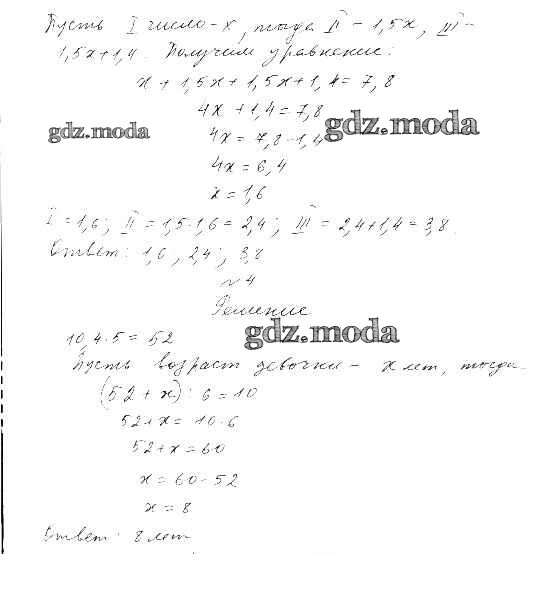 Пусть I число - x, тогда II - 1,5x, III -
1,5x+1,4. Получим уравнение:
x + 1,5x + 1,5x + 1,4 = 7,8
4x + 1,4 = 7,8
4x = 7,8 - 1,4
gdz.moda
gdz.moda
4x = 6,4
x = 1,6
I = 1,6; II = 1,5·1,6 = 2,4; III = 2,4+1,4 = 3,8.
Ответ: 1,6, 2,4; 3,8
№4
Решение
10,4·5 = 52
gdz.moda
Пусть возраст девочки - x лет, тогда
(52 + x) : 6 = 10
52+x = 10·6
52+x = 60
x = 60-52
x = 8
Ответ: 8 лет